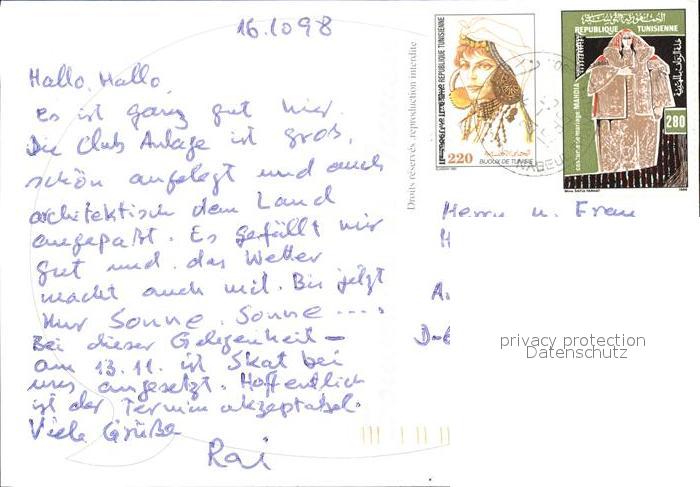 16.10 98
Hallo, Hallo,
es ist ganz gut hier.
Die Club Anlage ist groß,
schön angelegt und auch
architektisch dem Land
angepaßt. Es gefällt mir
gut und das Wetter
macht auch mit. Bis jetzt
nur Sonne, Sonne ....
Bei dieser Gelegenheit –
am 13.11. ist Skat bei
uns angesetzt. Hoffentlich
ist der Termin akzeptabel.
Viele Grüße
Rai
Droits réservés, reproduction interdite
REPUBLIQUE TUNISIENNE
220
BIJOUX DE TUNISIE
REPUBLIQUE TUNISIENNE
costume de mariage MAHDIA
280
NABEUL
Herrn u. Frau
H
A
D-6
privacy protection
Datenschutz